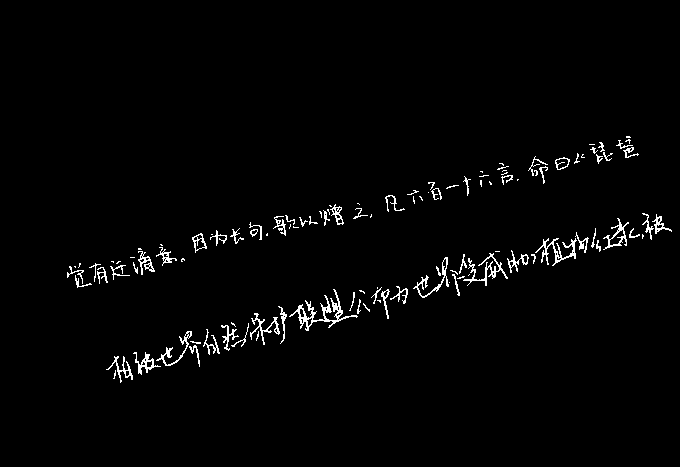 觉有迁谪意。因为长句,歌以赠之,凡六百一十六言,命曰《琵琶
柏被世界自然保护联盟公布为世界受威胁植物红本,被